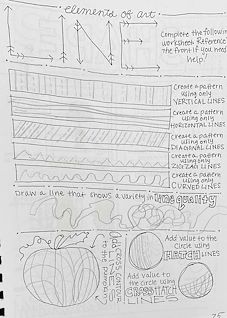 elements of art
LINE
Complete the following
worksheet. Reference
the front if you need
help!
Create a pattern
using only
VERTICAL LINES
Create a pattern
using only
HORIZONTAL LINES
Create a pattern
using only
DIAGONAL LINES
Create a pattern
using only
ZIGZAG LINES
Create a pattern
using only
CURVED LINES
Draw a line that shows a variety in line quality
Add CROSS CONTOUR
LINES
to the pumpkin
Add value to the
circle using
HATCH LINES
Add value to
the circle using
CROSSHATCH
LINES
75